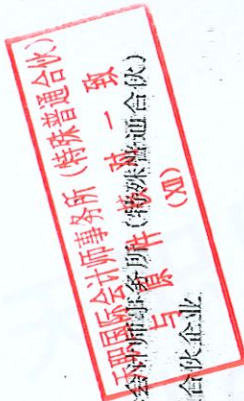 天职国际会计师事务所（特殊普通合伙）
与原件核对一致
（Ⅻ）
会计师事务所（特殊普通合伙）
合伙企业